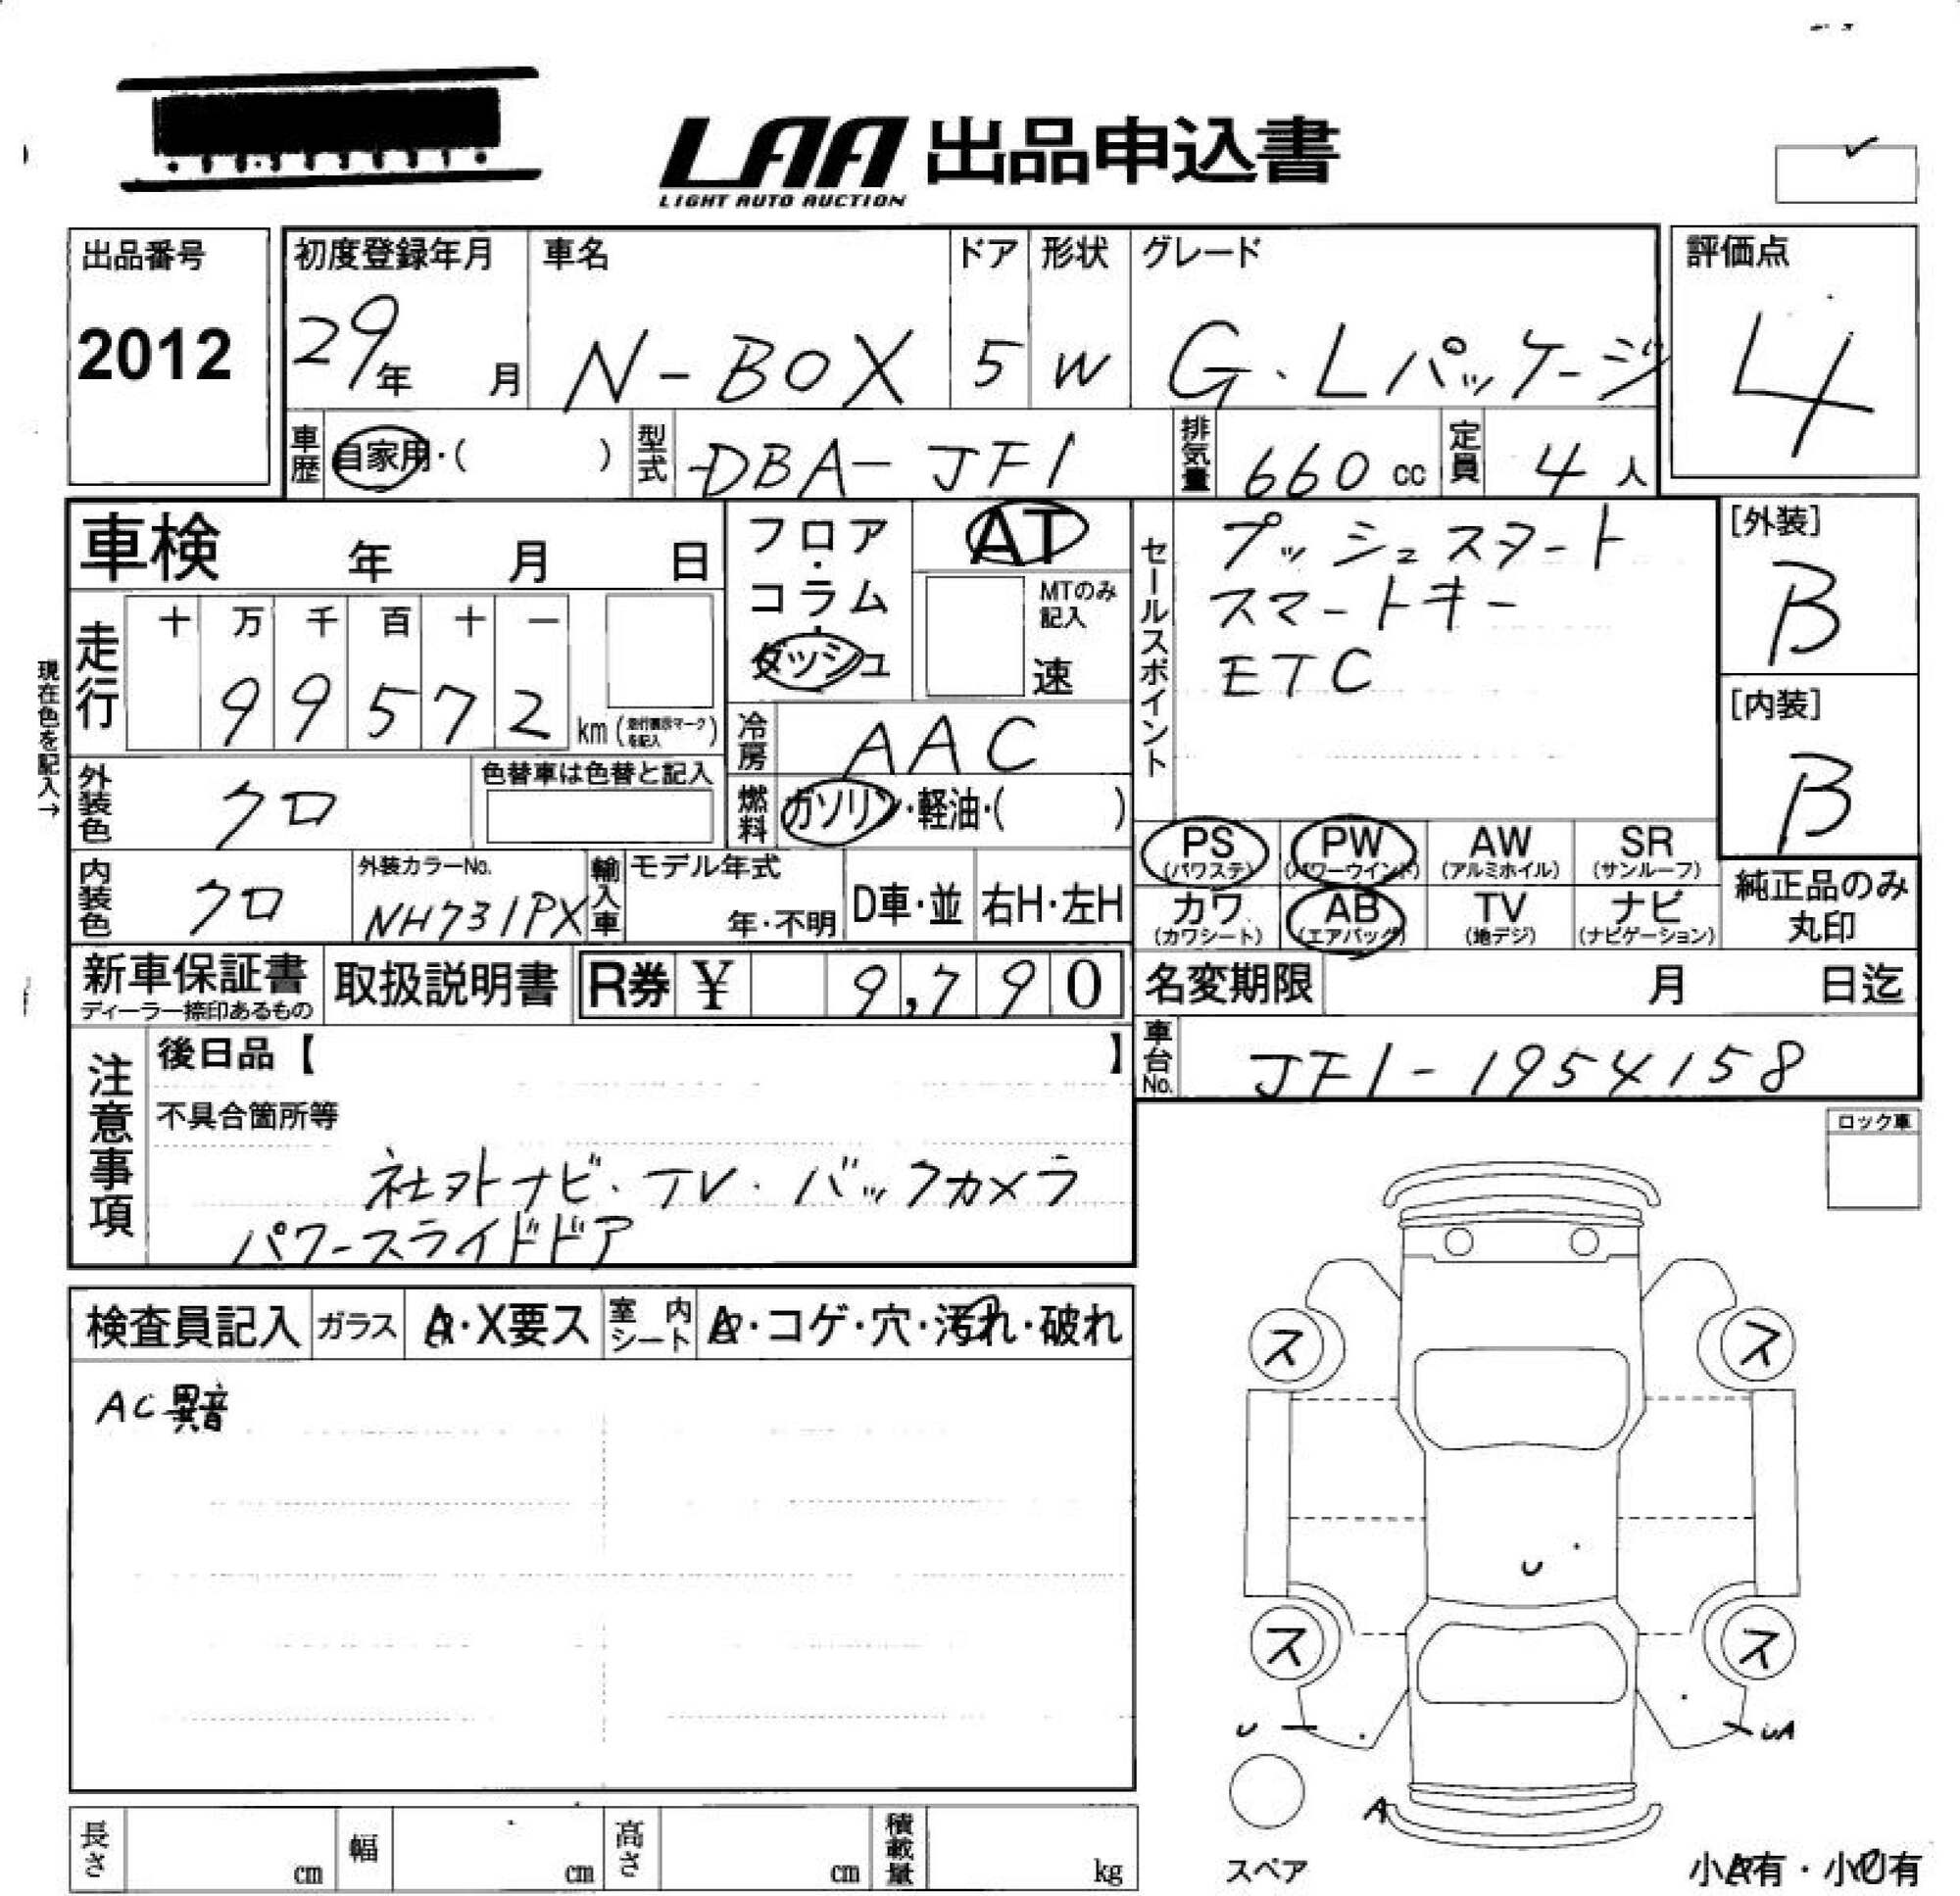 LAA 出品申込書
LIGHT AUTO AUCTION
出品番号
2012
初度登録年月
29年 月
車名
N-BOX
ドア
5
形状
W
グレード
G・Lパッケージ
評価点
4
車歴
自家用・( )
型式
DBA-JF1
排気量
660 cc
定員
4 人
車検 年 月 日
現在色を記入→
走行
十 万 千 百 十 一
9 9 5 7 2
km (走行表示マークを記入)
フロア・
コラム・
ダッシュ
AT
MTのみ
記入
速
冷房
AAC
燃料
ガソリン・軽油・( )
外装色
クロ
色替車は色替と記入
内装色
クロ
外装カラーNo.
NH731PX
輸入車
モデル年式
年・不明
D車・並
右H・左H
セールスポイント
プッシュスタート
スマートキー
ETC
[外装]
B
[内装]
B
PS
(パワステ)
PW
(パワーウインド)
AW
(アルミホイル)
SR
(サンルーフ)
カワ
(カワシート)
AB
(エアバッグ)
TV
(地デジ)
ナビ
(ナビゲーション)
純正品のみ
丸印
新車保証書
ディーラー捺印あるもの
取扱説明書
R券 ¥ 9,790
名変期限 月 日迄
車台No.
JF1-1954158
注意事項
後日品【 】
不具合箇所等
社外ナビ・TV・バックカメラ
パワースライドドア
ロック車
検査員記入
ガラス
A・X要ス
室内
シート
・コゲ・穴・汚れ・破れ
AC異音
ス
ス
U
ス
ス
U
UA
A
スペア
小A有・小U有
長さ
cm
幅
cm
高さ
cm
積載量
kg